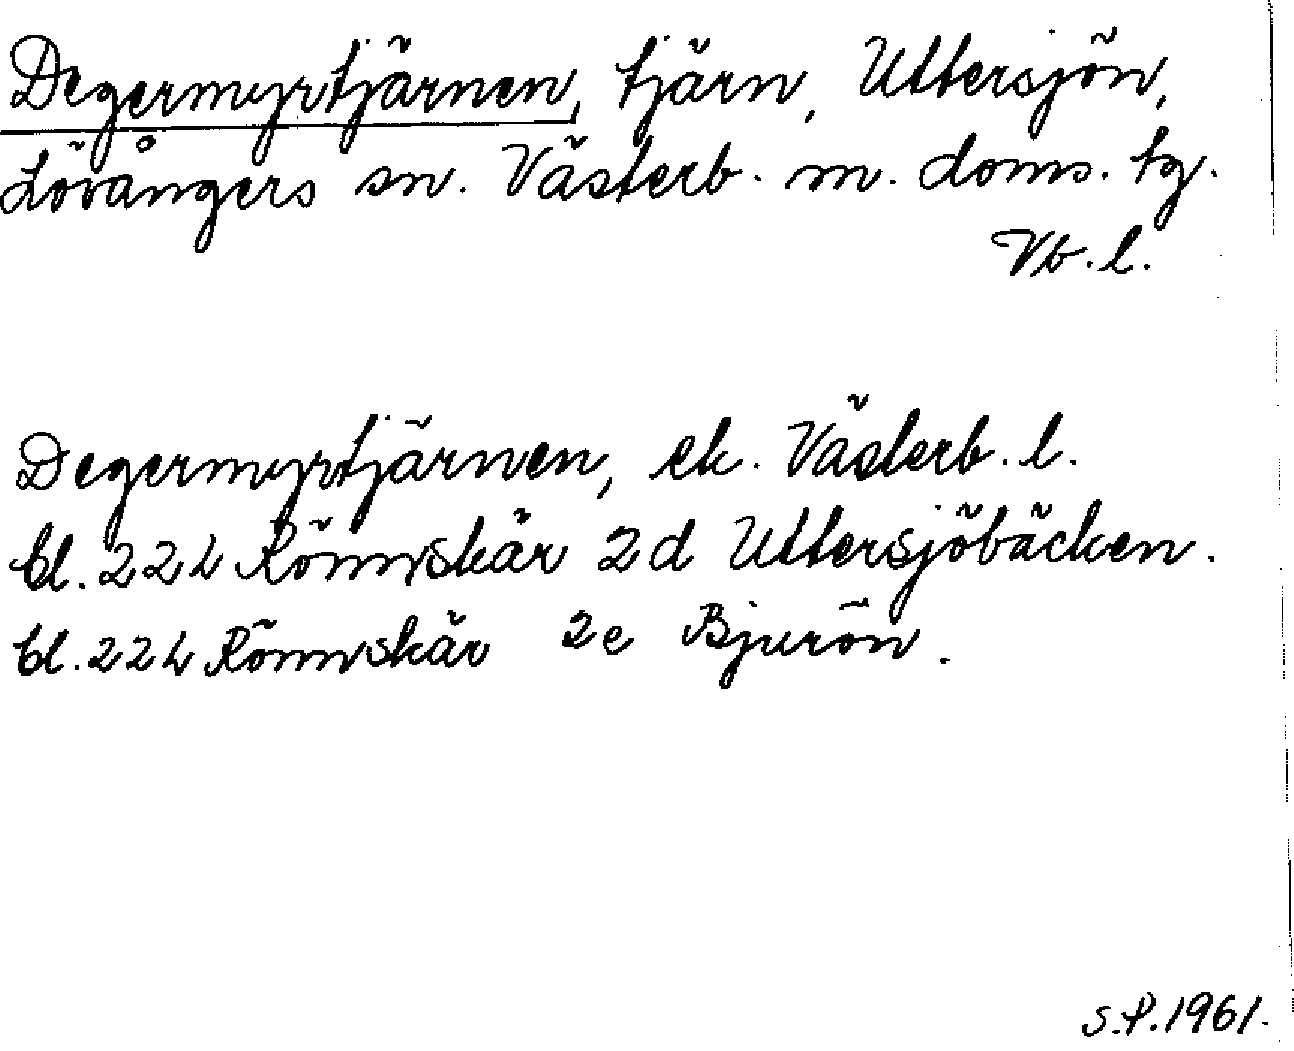 Degermyrtjärnen, tjärn, Uttersjön,
Lövångers sn. Västerb. m. doms. tg.
Vb. l.
Degermyrtjärnen, ek. Västerb. l.
bl. 22L Rönnskär 2d Uttersjöbäcken.
bl. 22L Rönnskär 2e Bjurön.
S.P. 1961.